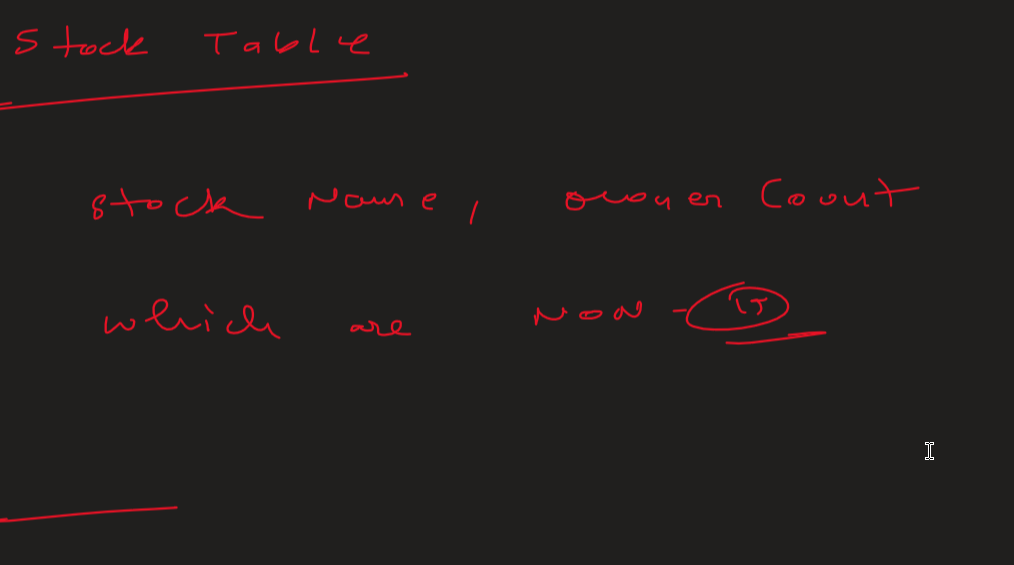 Stock Table
Stock Name, owner Count
which are NON-IT